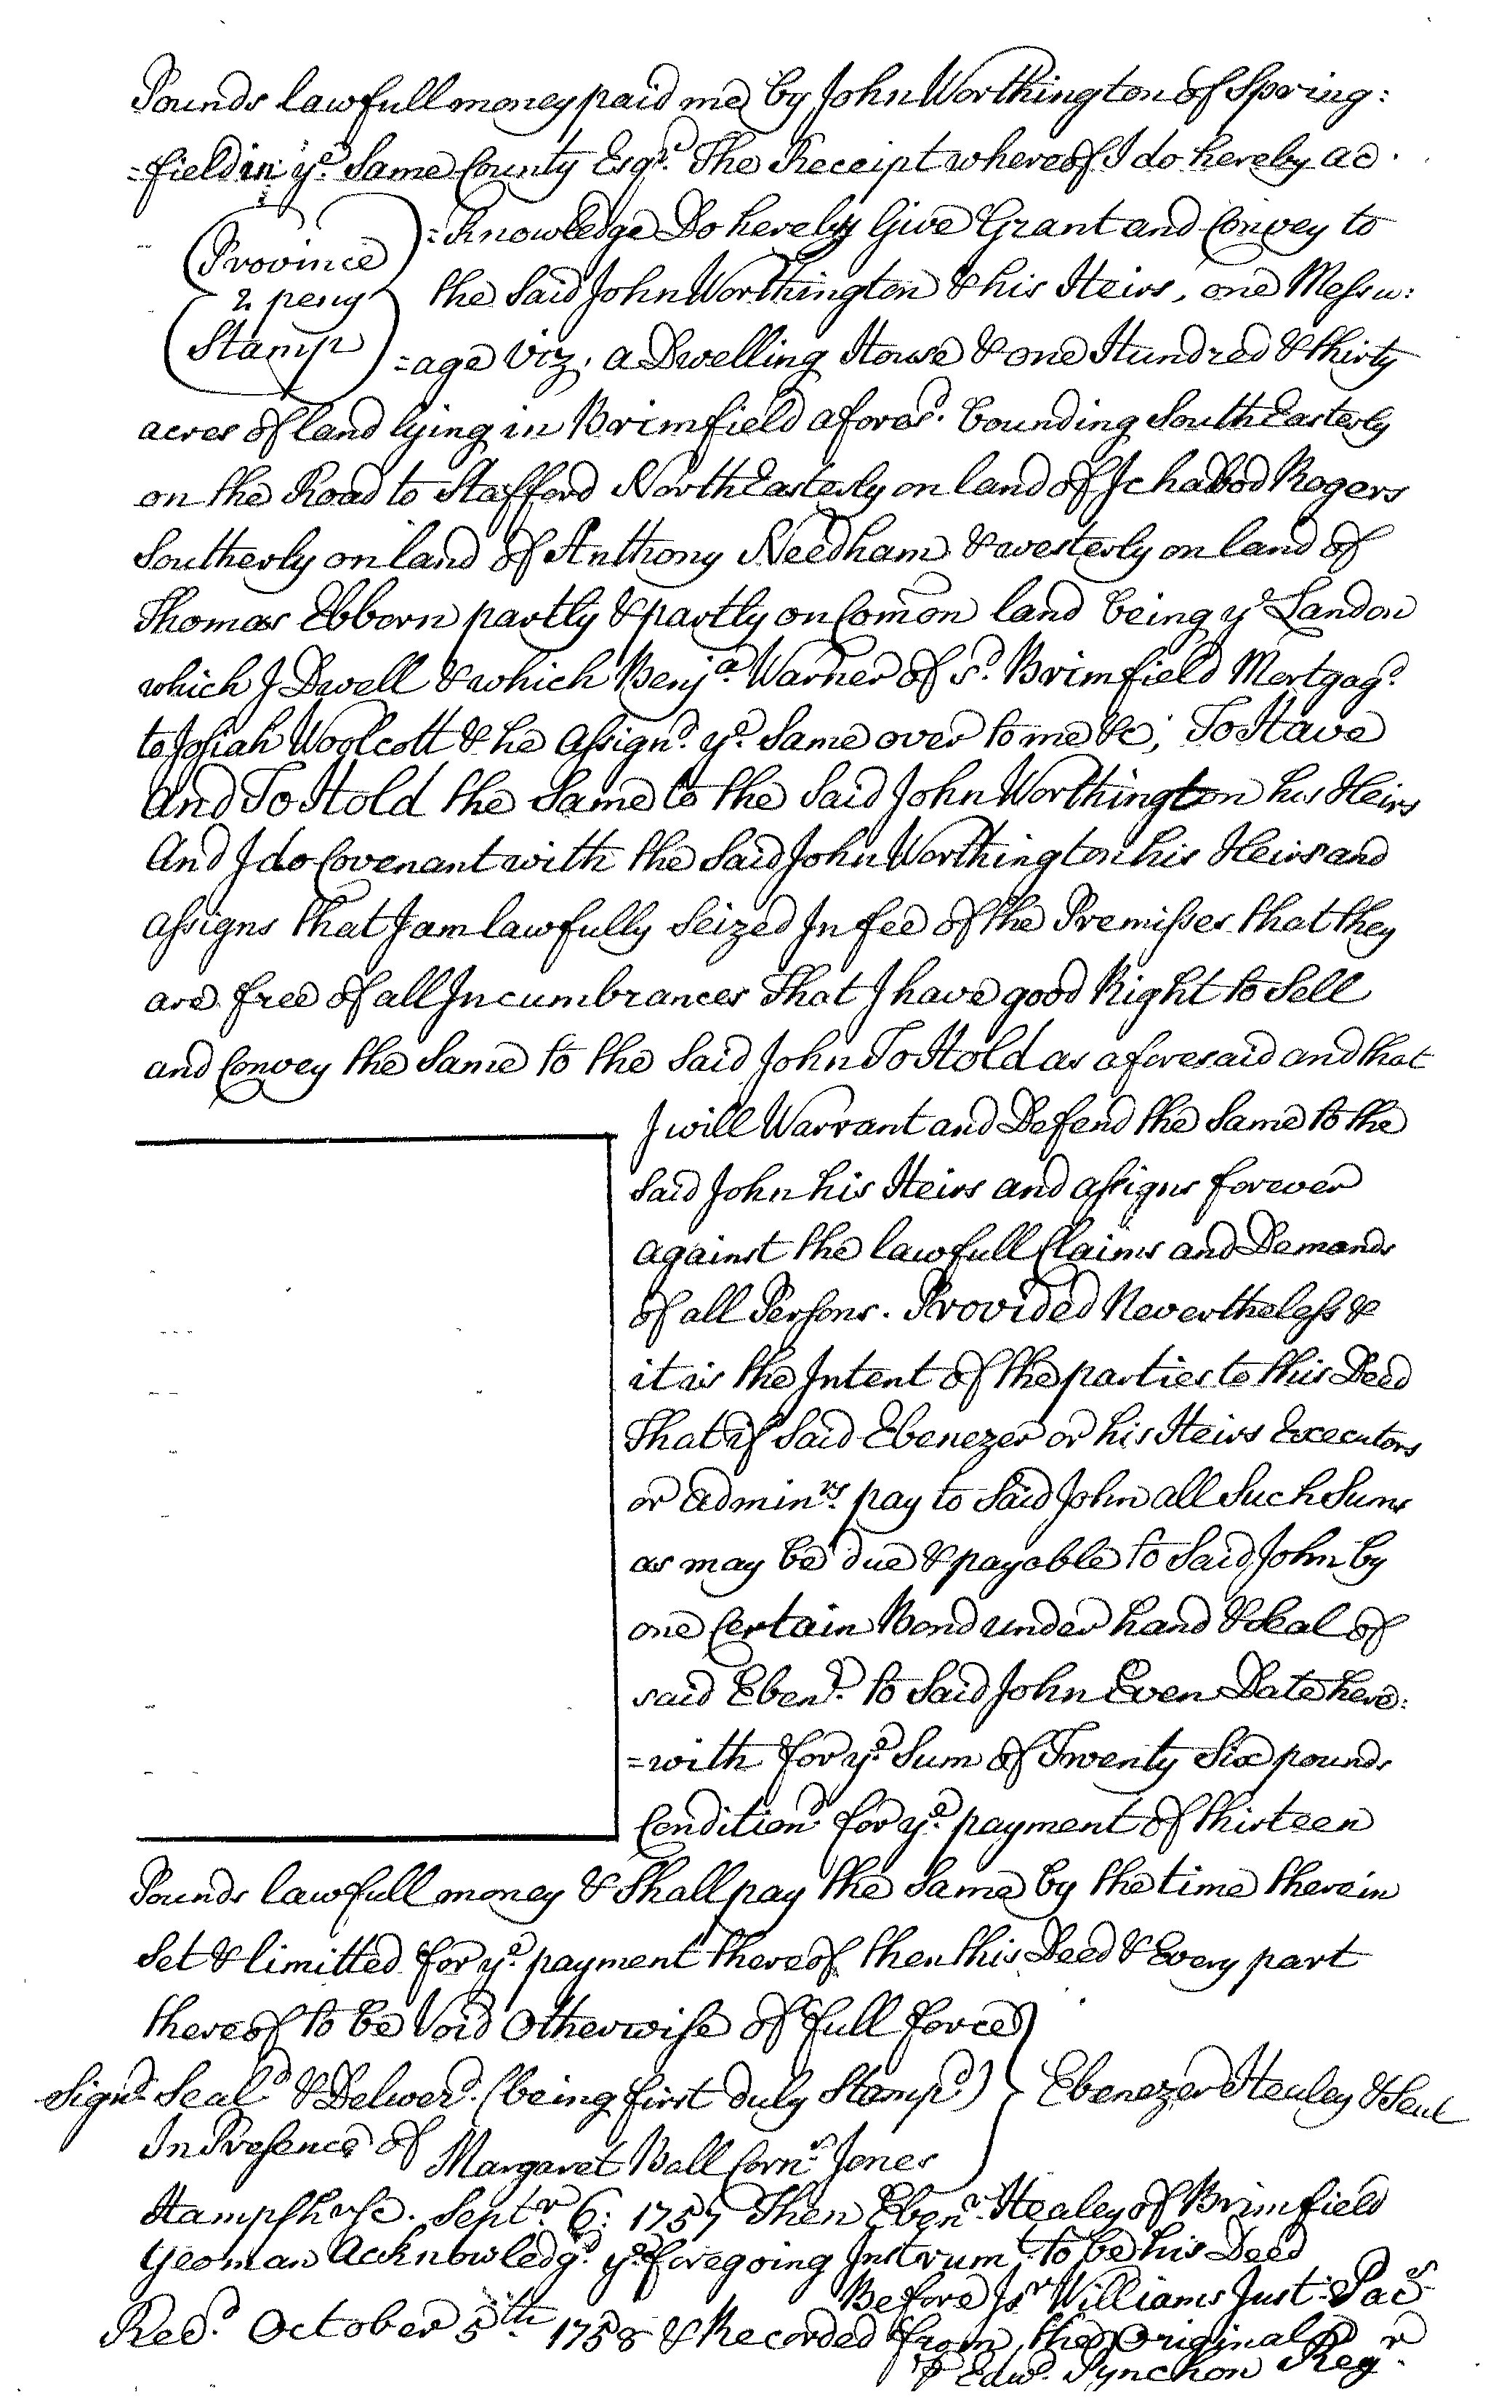 Pounds lawfull money paid me by John Worthington of Spring:
=field in yᵉ Same County Esqʳ. The Receipt whereof I do hereby ac
=Knowledge Do hereby Give Grant and Convey to
Province
2 peny
Stamp
the Said John Worthington & his Heirs, one Messu:
=age Viz. a Dwelling House & one Hundred & thirty
acres of land lying in Brimfield aforesᵈ. bounding SouthEasterly
on the Road to Stafford NorthEasterly on land of Ichabod Rogers
Southerly on land of Anthony Needham & westerly on land of
Thomas Ebborn partly & partly on Comon land being yᵉ Land on
which I Dwell & which Benjᵃ. Warner of sᵈ. Brimfield Mortgagᵈ.
to Josiah Woolcott & he Assignᵈ. yᵉ. Same over to me &c; To Have
And To Hold the Same to the Said John Worthington his Heirs
And I do Covenant with the Said John Worthington his Heirs and
assigns that I am lawfully Seized In fee of the Premisses that they
are free of all Incumbrances That I have good Right to Sell
and Convey the Same to the Said John To Hold as aforesaid and that
I will Warrant and Defend the Same to the
Said John his Heirs and assigns forever
against the lawfull Claims and Demands
of all Persons. Provided Nevertheless &
it is the Intent of the parties to this Deed
That if Said Ebenezer or his Heirs Executors
or Adminʳˢ. pay to Said John all Such Sums
as may be due & payable to Said John by
one Certain Bond under hand & Seal of
said Ebenʳ. to Said John Even Date here:
=with for yᵉ Sum of Twenty Six pounds
Conditionᵈ for yᵉ. payment of thirteen
Pounds lawfull money & Shall pay the Same by the time therein
Set & limitted for yᵉ. payment thereof then this Deed & Every part
thereof to be Void Otherwise of full force
Signᵈ. Sealᵈ & Deliverᵈ. (being first duly Stampᵈ) Ebenezer Healey & Seal
In Presence of Margaret Ball Cornˢ. Jones
Hampshʳ Sc. Septʳ. 6: 1757 Then Ebenʳ. Healey of Brimfield
Yeoman Acknowledgᵈ. yᵉ. foregoing Instrumᵗ. to be his Deed
Before Isʳ Williams Just: Pacˢ.
Recᵈ. October 5ᵗʰ. 1758 & Recorded from the Original
ꝑ Edwᵈ. Pynchon Regʳ.